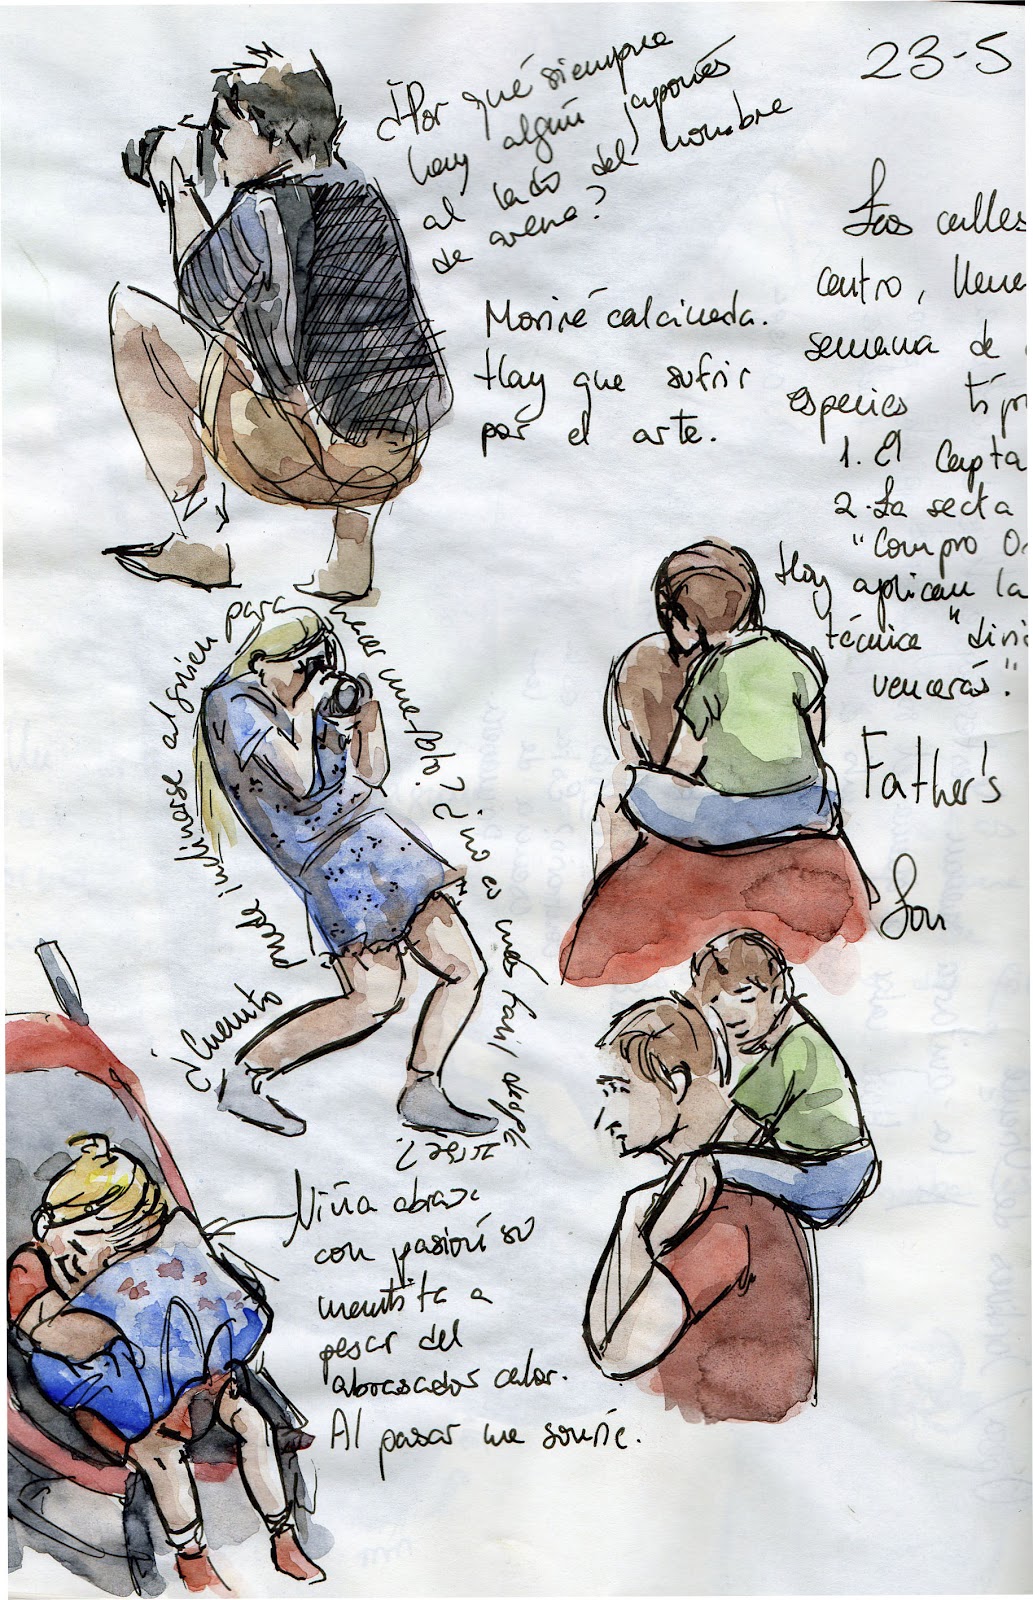 23-5
¿Por qué siempre
hay algún japonés
al lado del hombre
de arena?
Moriré calcinada.
Hay que sufrir
por el arte.
Las calles
centro, llene
semana de
especies típi
1. El Capta
2. La secta
"Compro O
Hoy aplican la
técnica "divi
vencerás."
¿Cuánto puede inclinarse alguien para hacer una foto? ¿no es más fácil despl
arse?
Father's
Son
Niña abraza
con pasión su
mantita a
pesar del
abrasador calor.
Al pasar me sonríe.